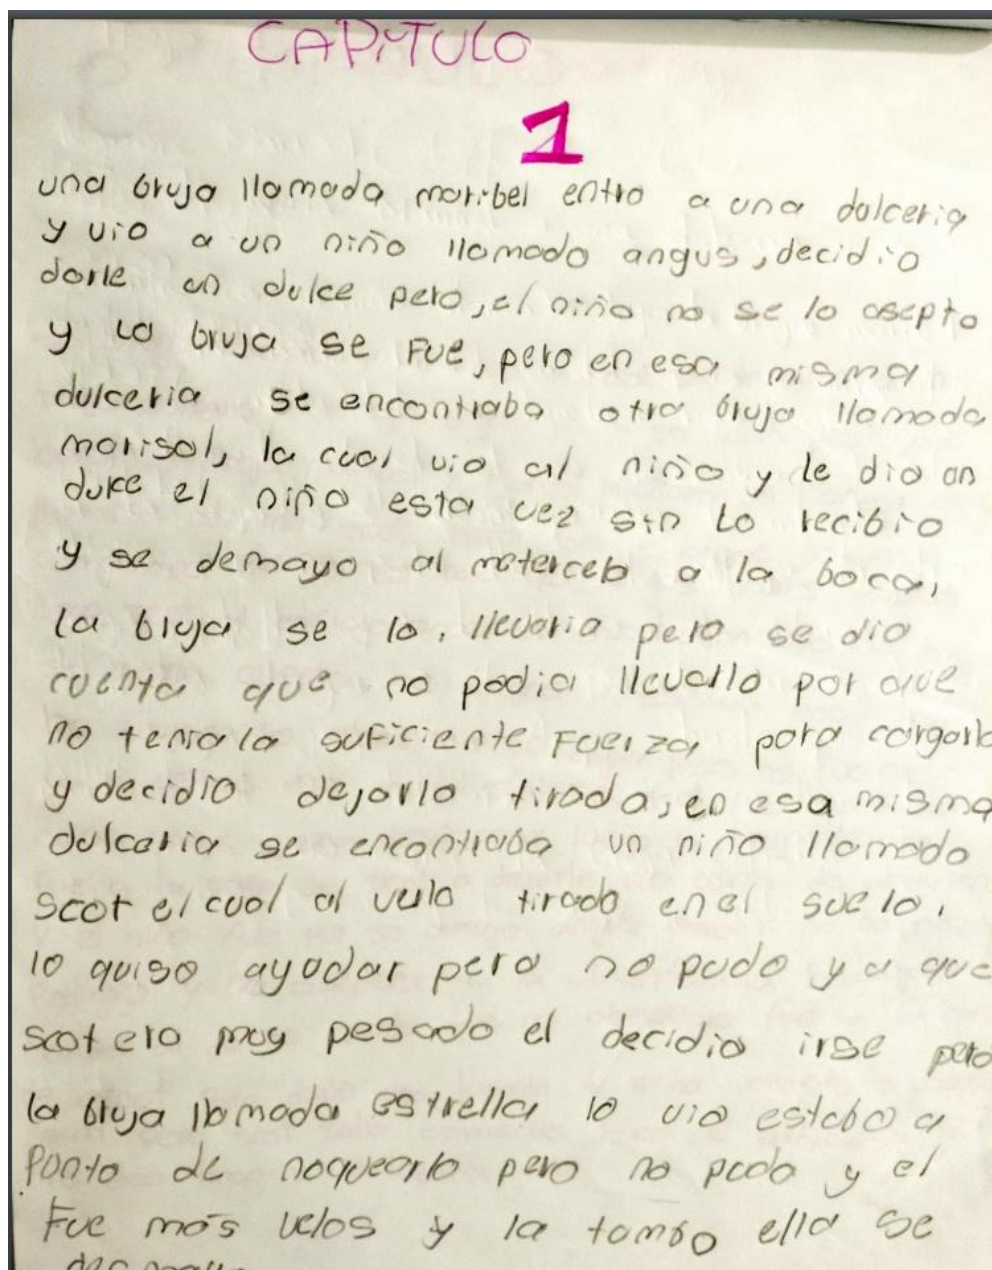 CAPiTULO
1
una bruja llamada maribel entro a una dulceria
y vio a un niño llamado angus, decidio
darle un dulce pero, el niño no se lo asepto
y La bruja se FUE, pero en esa misma
dulceria se encontraba otra bruja llamada
marisol, la cual vio al niño y le dio un
dulce el niño esta vez sin Lo recibio
y se demayo al meterceb a la boca,
la bruja se lo. llevaria pero se dio
cuenta que no podia llevallo por que
no tenia la suficiente Fuerza para cargarlo
y decidio dejarlo tirado, en esa misma
dulceria se encontraba un niño llamado
scot el cual al verlo tirado en el suelo,
lo quiso ayudar pero no pudo ya que
scot era muy pesado el decidio irse pero
la bruja llamada estrella lo vio estabo a
Punto de noquearlo pero no pudo y el
Fue más velos y la tambo ella se